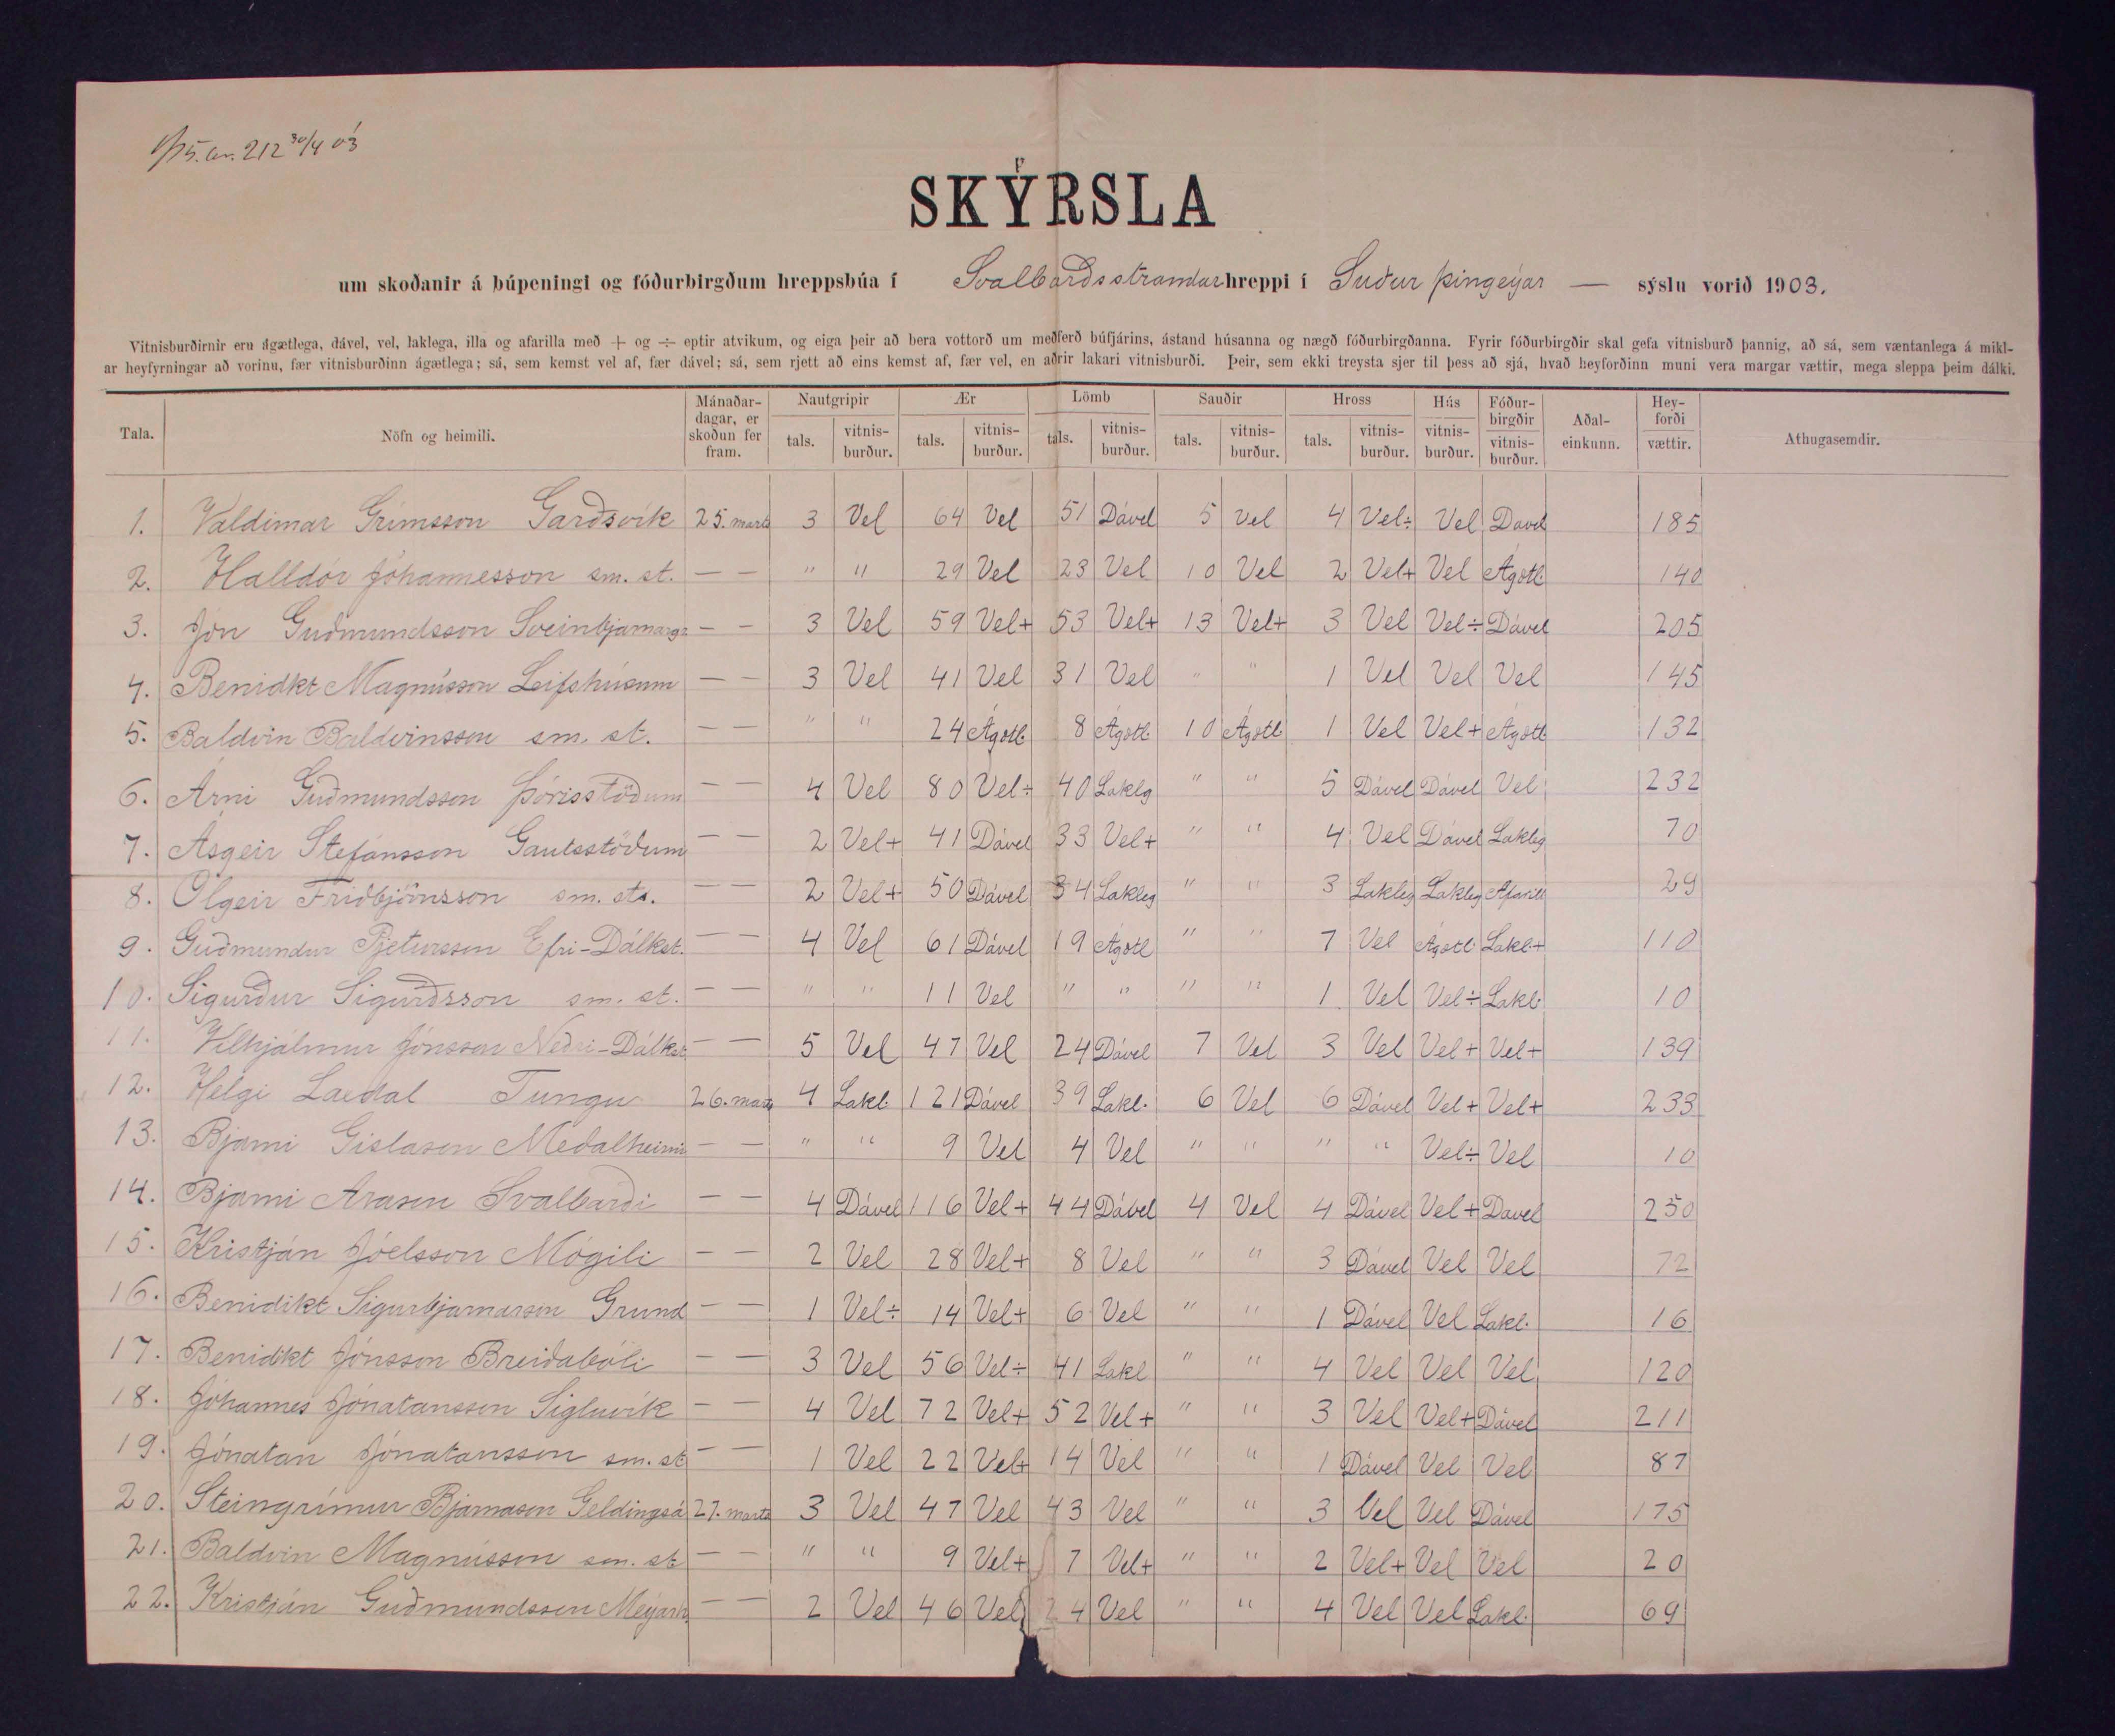 SKÝRSLA
um skoðanir á búpeningi og fóðurbirgðum hreppsbúa í Svalbarðsstrandar hreppi í Suður þingeyjar — sýslu vorið 1903.
Vitnisburðirnir eru ágætlega, dável, vel, laklega, illa og afarilla með + og ÷ eptir atvikum, og eiga þeir að bera vottorð um meðferð búfjárins, ástand húsanna og nægð fóðurbirgðanna. Fyrir fóðurbirgðir skal gefa vitnisburð þannig, að sá, sem væntanlega á mikl-
ar heyfyrningar að vorinu, fær vitnisburðinn ágætlega; sá, sem kemst vel af, fær dável; sá, sem rjett að eins kemst af, fær vel, en aðrir lakari vitnisburði. Þeir, sem ekki treysta sjer til þess að sjá, hvað heyforðinn muni vera margar vættir, mega sleppa þeim dálki.
Tala. Nöfn og heimili. Mánaðar-dagar, er skoðun fer fram. Nautgripir tals. vitnis-burður. Ær tals. vitnis-burður. Lömb tals. vitnis-burður. Sauðir tals. vitnis-burður. Hross tals. vitnis-burður. Hús vitnis-burður. Fóður-birgðir vitnis-burður. Aðal-einkunn. Hey-forði vættir. Athugasemdir.
1. Valdimar Grímsson Garðsvík 25. marts 3 Vel 64 Vel 51 Dável 5 Vel 4 Vel÷ Vel Davel 185
2. Halldór Jóhannesson sm. st. — — " " 29 Vel 23 Vel 10 Vel 2 Vel+ Vel Ágætl. 140
3. Jón Guðmundsson Sveinbjarnarg. — — 3 Vel 59 Vel+ 53 Vel+ 13 Vel+ 3 Vel Vel÷ Dável 205
4. Benidkt Magnússon Leifshúsum — — 3 Vel 41 Vel 31 Vel " " 1 Vel Vel Vel 145
5. Baldvin Baldvinsson sm. st. — — " " 24 Ágætl. 8 Ágætl. 10 Ágætl 1 Vel Vel+ Ágætl 132
6. Árni Guðmundsson Þórisstöðum — — 4 Vel 80 Vel÷ 40 Laklg " " 5 Dável Dável Vel 232
7. Ásgeir Stefánsson Gautsstöðum — — 2 Vel+ 41 Dável 33 Vel+ " " 4 Vel Dável Lakleg 70
8. Olgeir Friðbjörnsson sm. st. — — 2 Vel+ 50 Dável 34 Lakleg " " 3 Lakleg Lakleg Afarill 29
9. Guðmundur Pjetursson Efri-Dálkst. — — 4 Vel 61 Dável 19 Ágætl " " 7 Vel Ágætl Lakl.+ 110
10. Sigurður Sigurðsson sm. st. — — " " 11 Vel " " " " 1 Vel Vel÷ Lakl. 10
11. Vilhjálmur Jónsson Neðri-Dálkst. — — 5 Vel 47 Vel 24 Dável 7 Vel 3 Vel Vel+ Vel+ 139
12. Helgi Laxdal Tungu 26. marts 4 Lakl. 121 Dável 39 Lakl. 6 Vel 6 Dável Vel+ Vel+ 233
13. Bjarni Gíslason Meðalheimi — — " " 9 Vel 4 Vel " " " " Vel÷ Vel 10
14. Bjarni Arason Svalbarði — — 4 Dável 116 Vel+ 44 Dável 4 Vel 4 Dável Vel+ Davel 250
15. Kristján Jóelsson Mógili — — 2 Vel 28 Vel+ 8 Vel " " 3 Dável Vel Vel 72
16. Benidikt Sigurbjarnarson Grund — — 1 Vel÷ 14 Vel+ 6 Vel " " 1 Dável Vel Lakl. 16
17. Benidikt Jónsson Breiðabóli — — 3 Vel 56 Vel÷ 41 Lakl " " 4 Vel Vel Vel 120
18. Jóhannes Jónatansson Sigluvík — — 4 Vel 72 Vel+ 52 Vel+ " " 3 Vel Vel+ Dável 211
19. Jónatan Jónatansson sm. st — — 1 Vel 22 Vel+ 14 Vel " " 1 Dável Vel Vel 87
20. Steingrímur Bjarnason Geldingsá 27. marts 3 Vel 47 Vel 43 Vel " " 3 Vel Vel Dável 175
21. Baldvin Magnússon sm. st — — " " 9 Vel+ 7 Vel+ " " 2 Vel+ Vel Vel 20
22. Kristján Guðmundsson — — 2 Vel 46 Vel 24 Vel " " 4 Vel Vel Lakl. 69